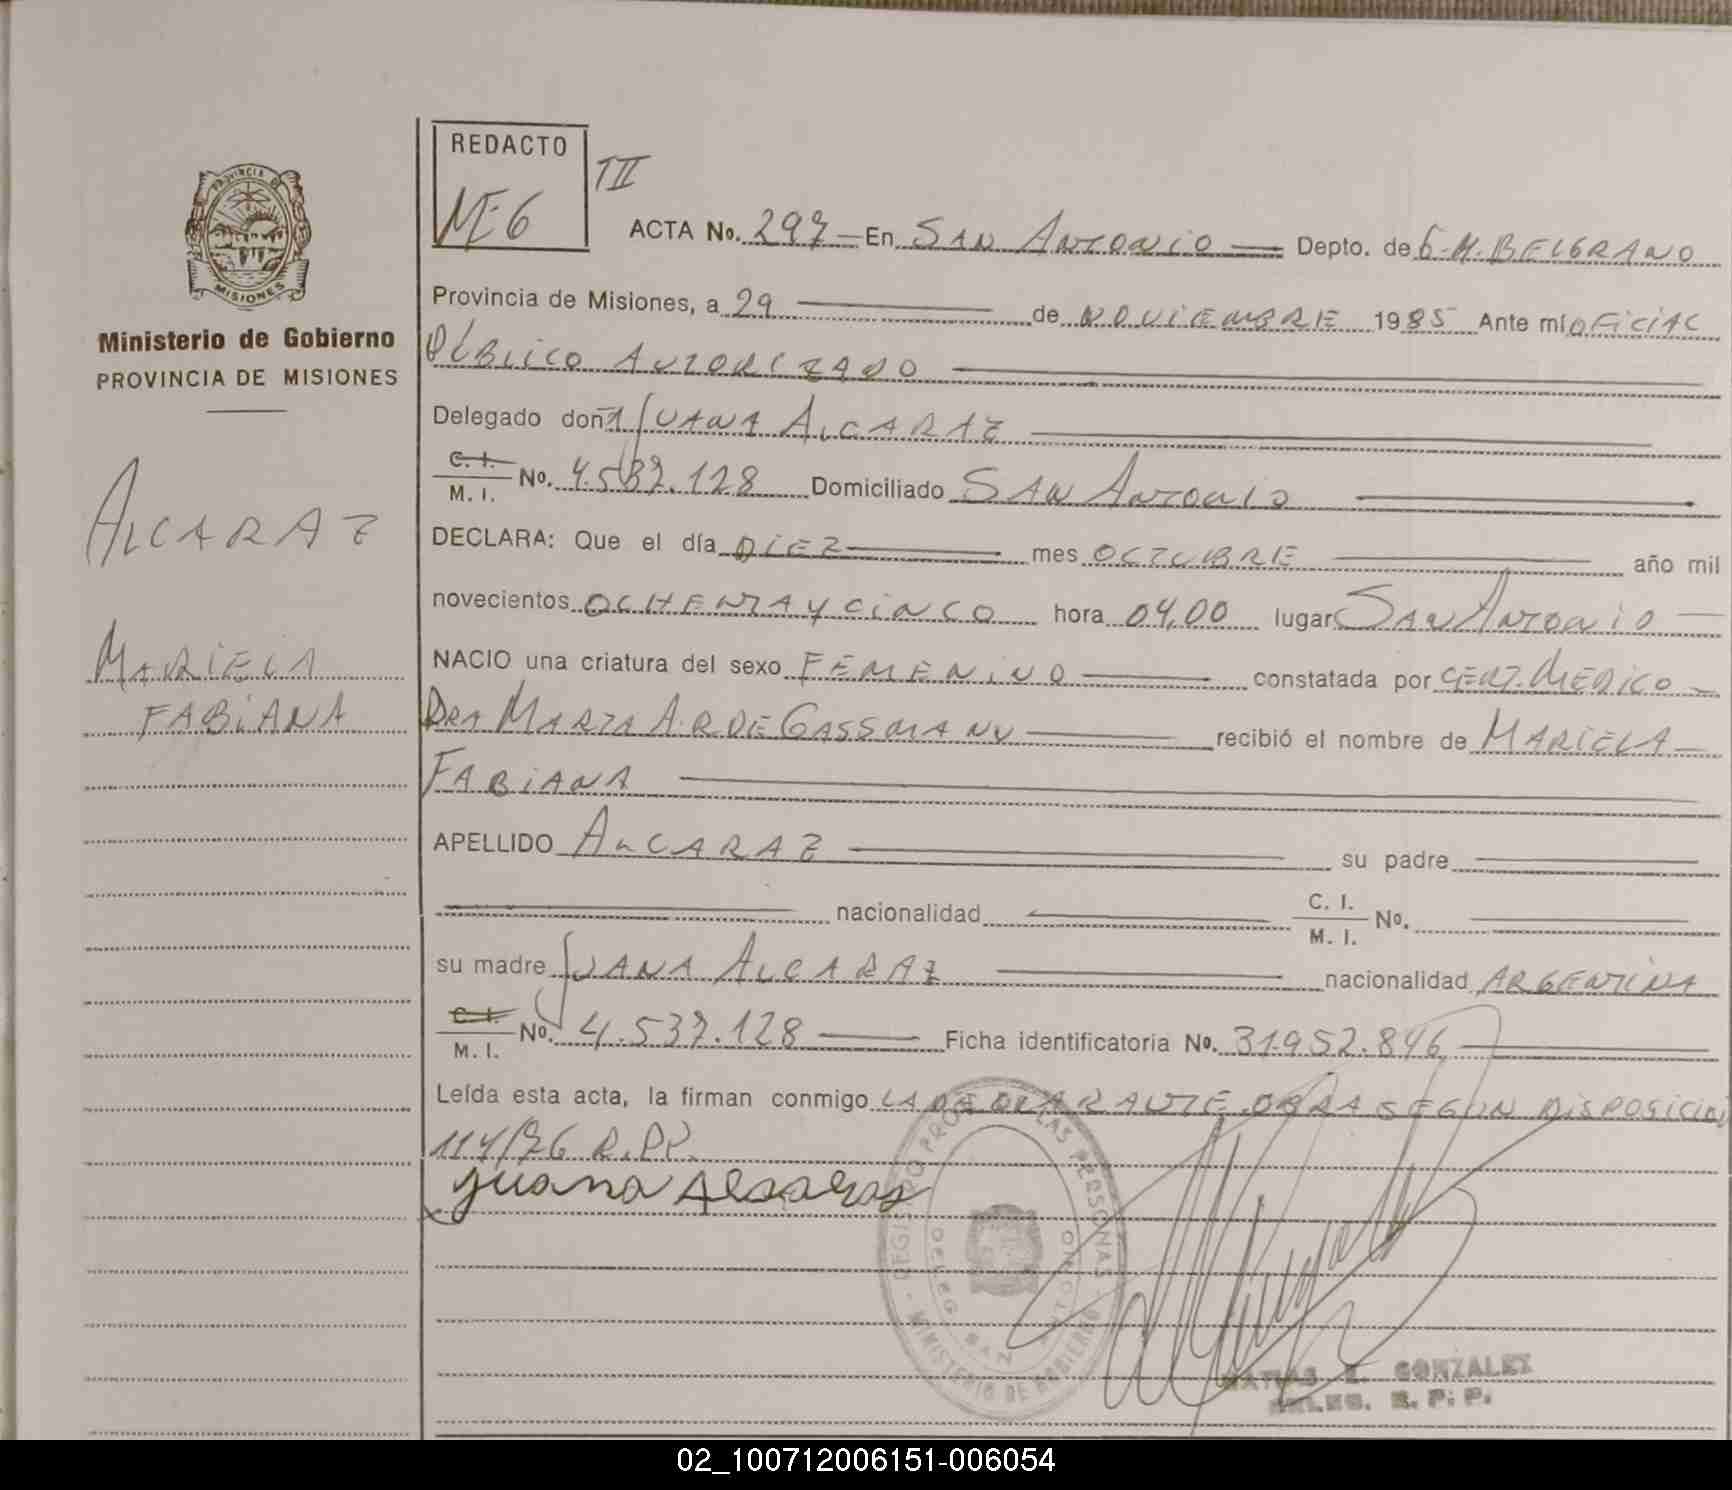 REDACTO
ME6
III
ACTA No. 297 — En SAN ANTONIO Depto. de G-M. BELGRANO
PROVINCIA DE
MISIONES
Ministerio de Gobierno
PROVINCIA DE MISIONES
ALCARAZ
MARIELA
FABIANA
Provincia de Misiones, a 29 de NOVIEMBRE 1985 Ante mí OFICIAL
PÚBLICO AUTORIZADO
Delegado doñA JUANA ALCARAZ
C. I. / M. I. No. 4.537.128 Domiciliado SAN ANTONIO
DECLARA: Que el día DIEZ mes OCTUBRE año mil
novecientos OCHENTA Y CINCO hora 04,00 lugar SAN ANTONIO
NACIO una criatura del sexo FEMENINO constatada por CERT. MEDICO
DRA MARTA A. R DE GASSMANN recibió el nombre de MARIELA
FABIANA
APELLIDO ALCARAZ su padre
nacionalidad C. I. / M. I. No.
su madre JUANA ALCARAZ nacionalidad ARGENTINA
C. I. / M. I. No. 4.537.128 Ficha identificatoria No. 31.952.846
Leída esta acta, la firman conmigo LA DECLARANTE. OBRA SEGUN DISPOSICION
114/76 R.PP.
Juana Alcaras
REGISTRO PROV. DE LAS PERSONAS
MINISTERIO DE GOBIERNO
MATIAS E. GONZALEZ
DELEG. R. P. P.
02_100712006151-006054